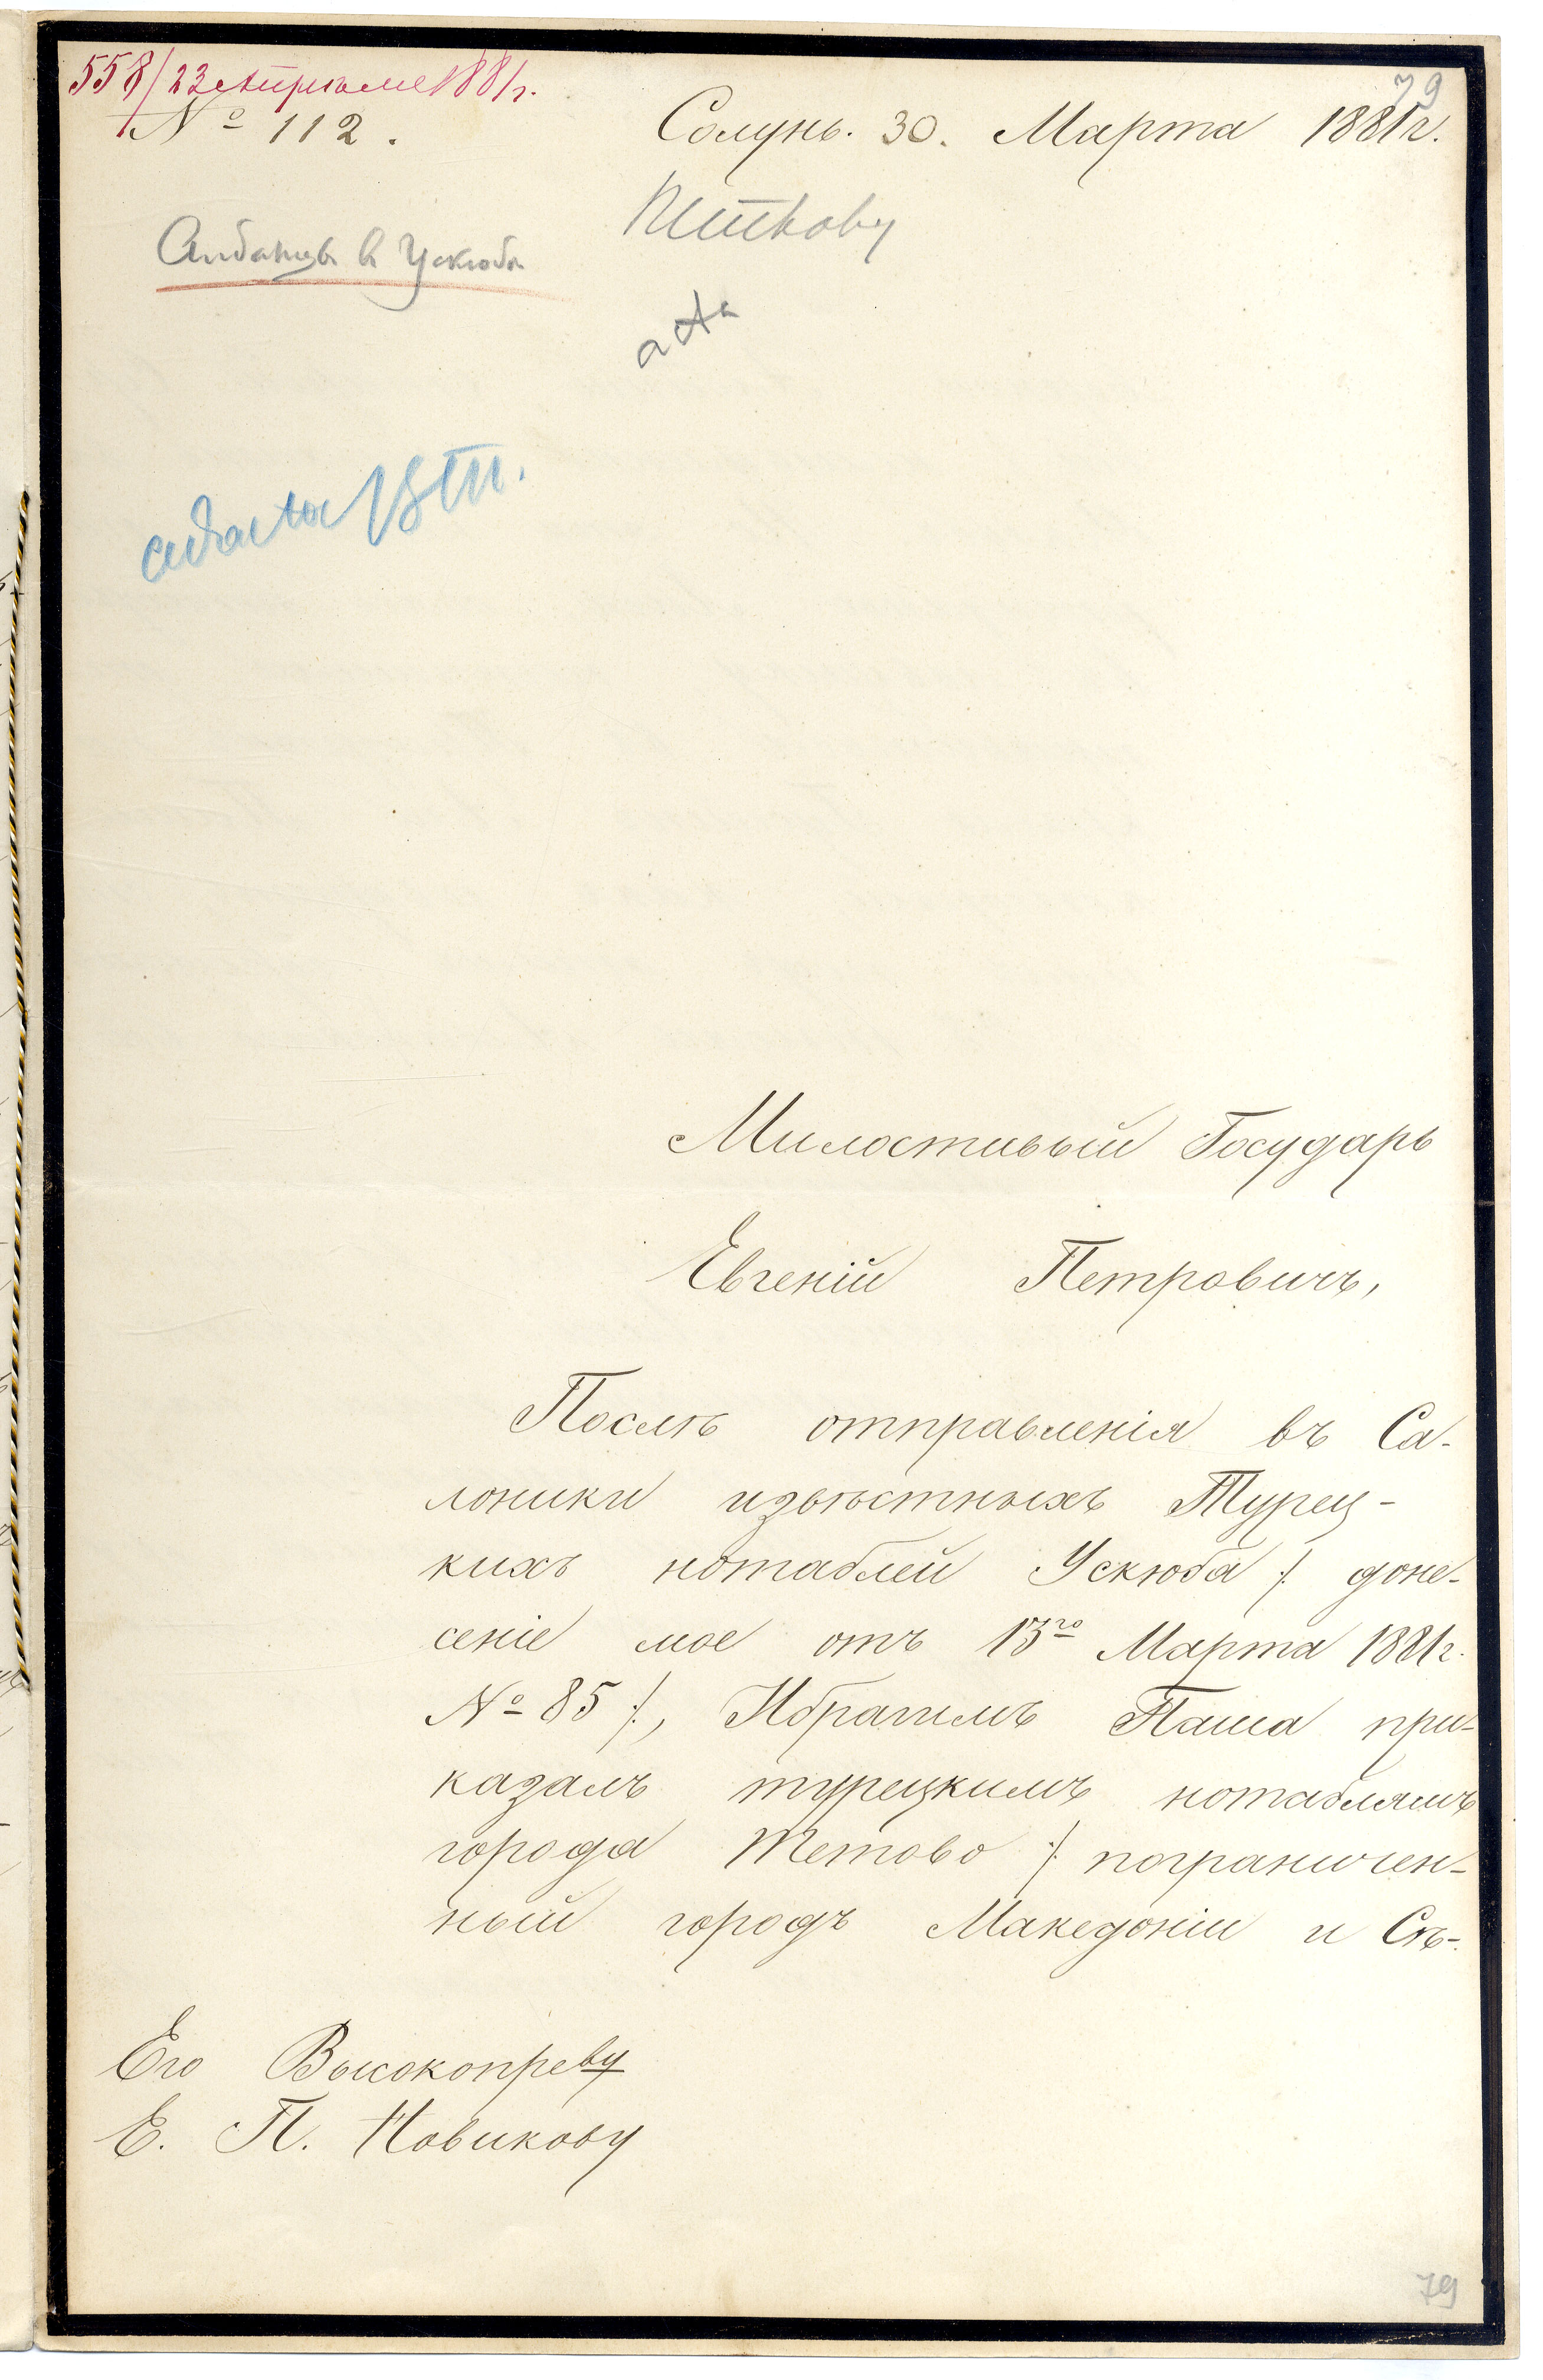 558/23 Апрѣля 1881 г.
79
№ 112.
Солунь. 30. Марта 1881 г.
Албанцы в Ускюбѣ
Милостивый Государь
Евгеній Петровичъ,
Послѣ отправленія въ Са-
лоники извѣстныхъ Турец-
кихъ нотаблей Ускюба /: доне-
сеніе мое отъ 13го Марта 1881 г.
№ 85 :/, Ибрагимъ Паша при-
казалъ турецкимъ нотаблямъ
города Тетово /: пограничен-
ный городъ Македоніи и Сѣ-
Его Высокопреву
Е. П. Новикову
79